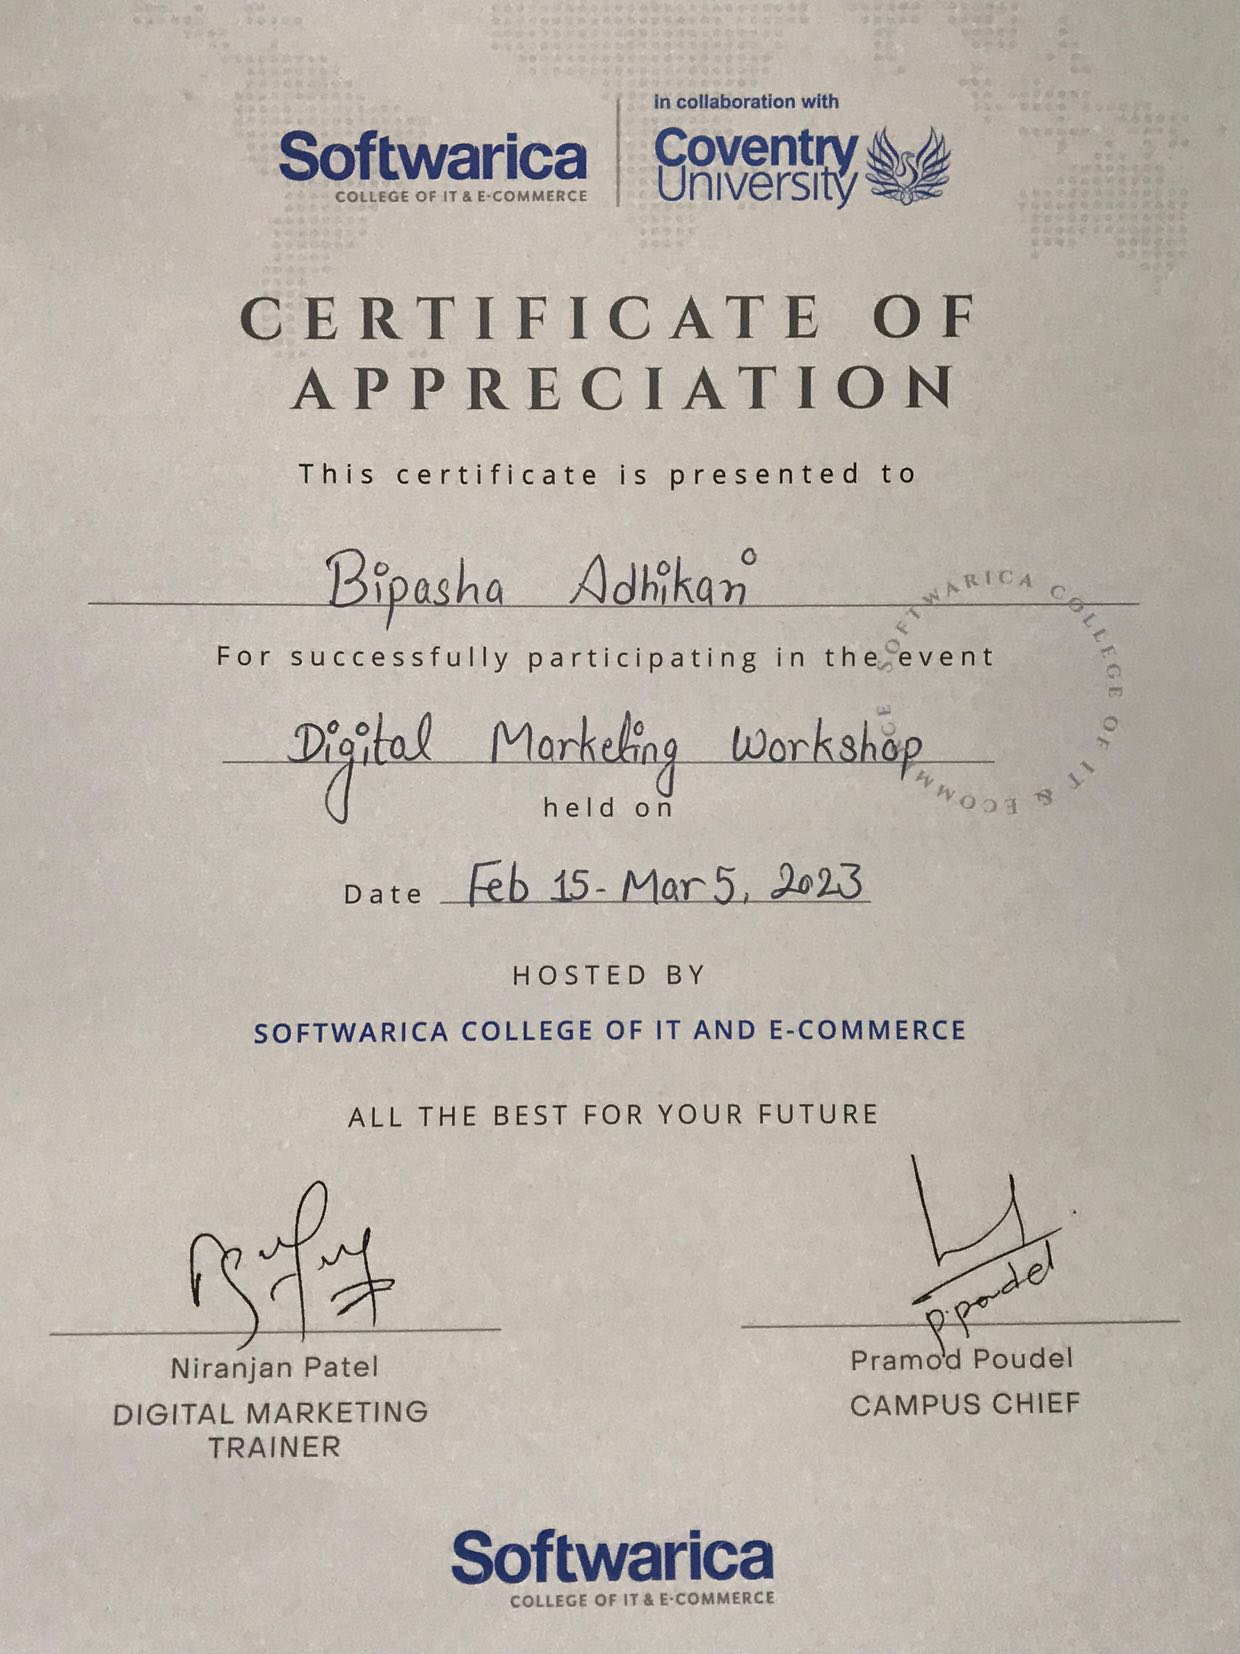 Softwarica
COLLEGE OF IT & E-COMMERCE
in collaboration with
Coventry
University
CERTIFICATE OF
APPRECIATION
This certificate is presented to
Bipasha Adhikari
For successfully participating in the event
Digital Marketing Workshop
SOFTWARICA COLLEGE OF IT & ECOMMERCE
held on
Date Feb 15 - Mar 5, 2023
HOSTED BY
SOFTWARICA COLLEGE OF IT AND E-COMMERCE
ALL THE BEST FOR YOUR FUTURE
P.Poudel
Niranjan Patel
DIGITAL MARKETING
TRAINER
Pramod Poudel
CAMPUS CHIEF
Softwarica
COLLEGE OF IT & E-COMMERCE